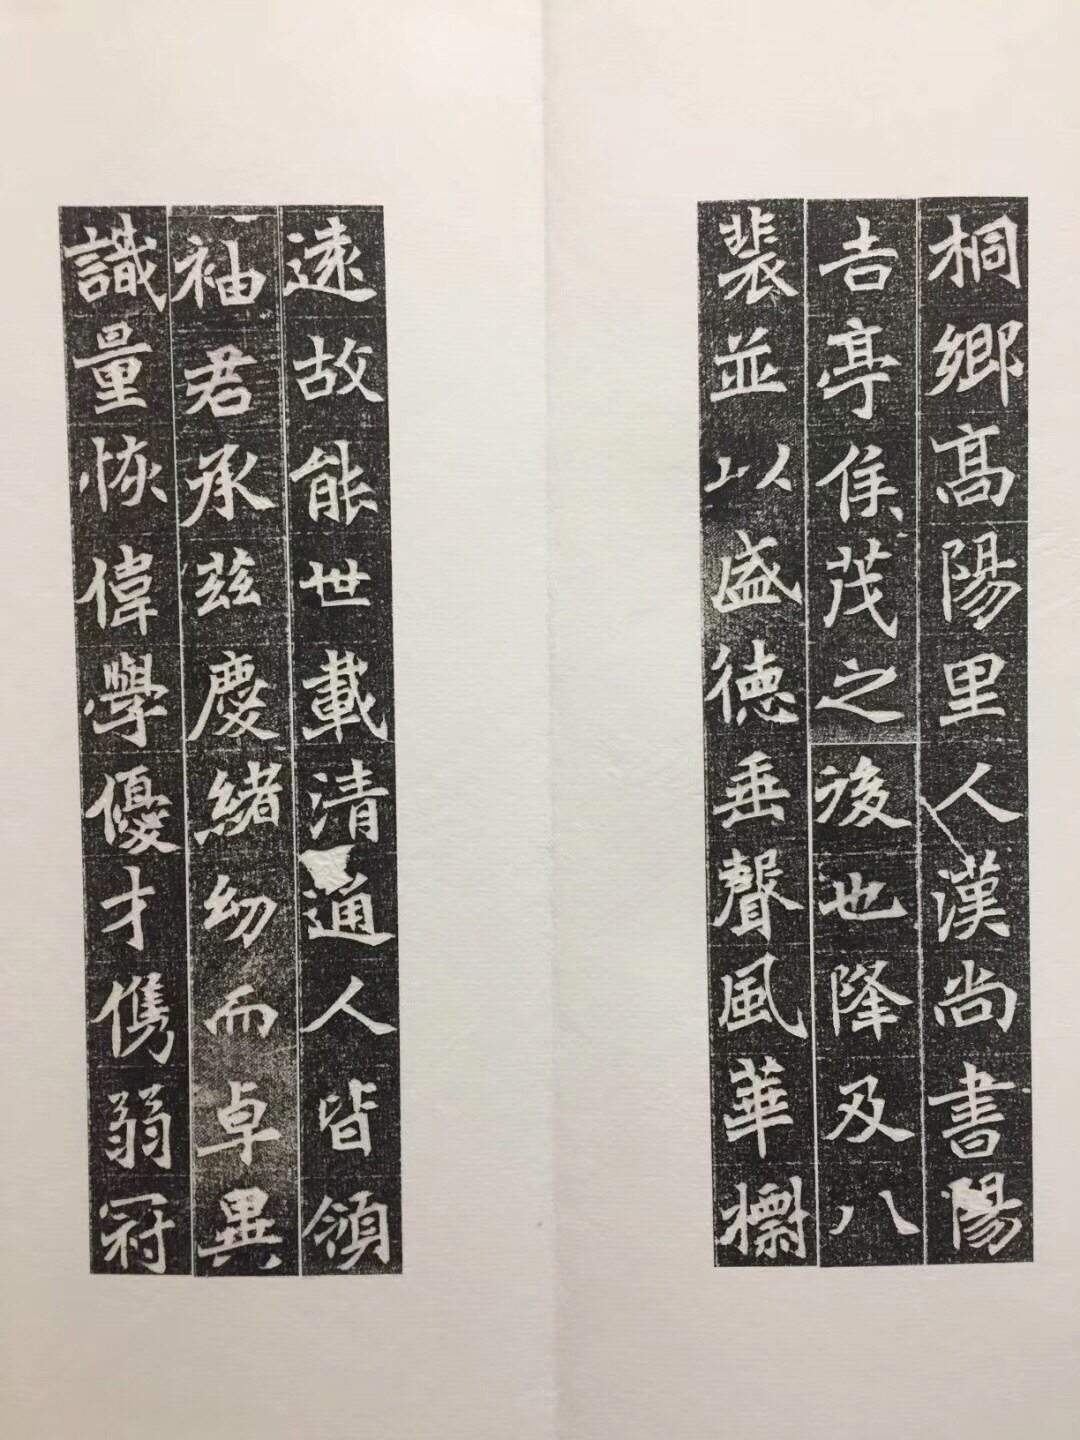 桐鄉高陽里人漢尚書陽
吉亭侯茂之後也降及八
裴並以盛德垂聲風華標
遠故能世載清通人皆領
袖君承茲慶緒幼而卓異
識量恢偉學優才儁弱冠